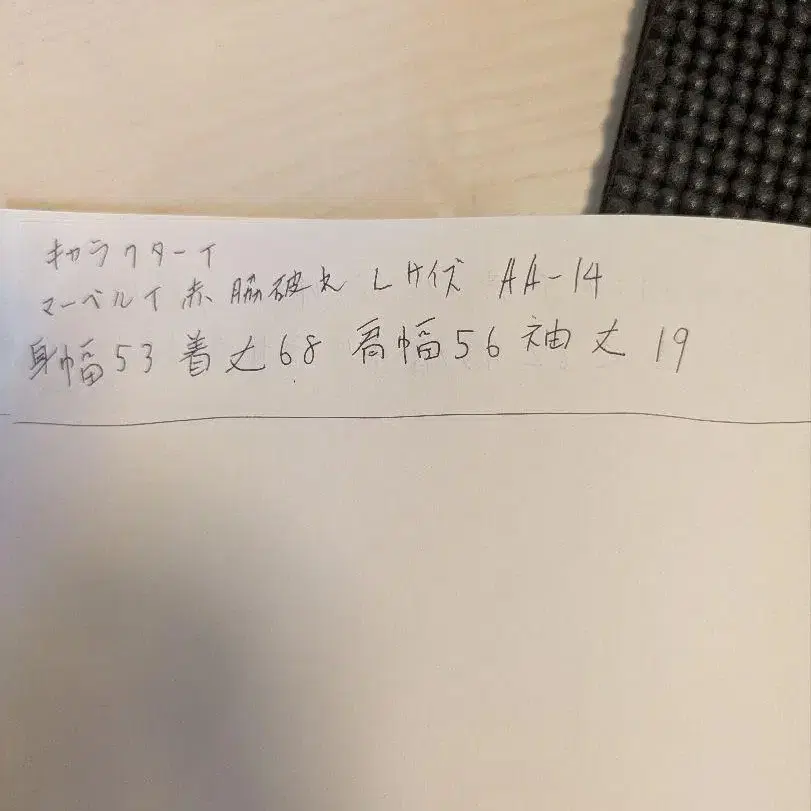 キャラクターT
マーベルT 赤 脇破れ Lサイズ AA-14
身幅53 着丈68 肩幅56 袖丈 19